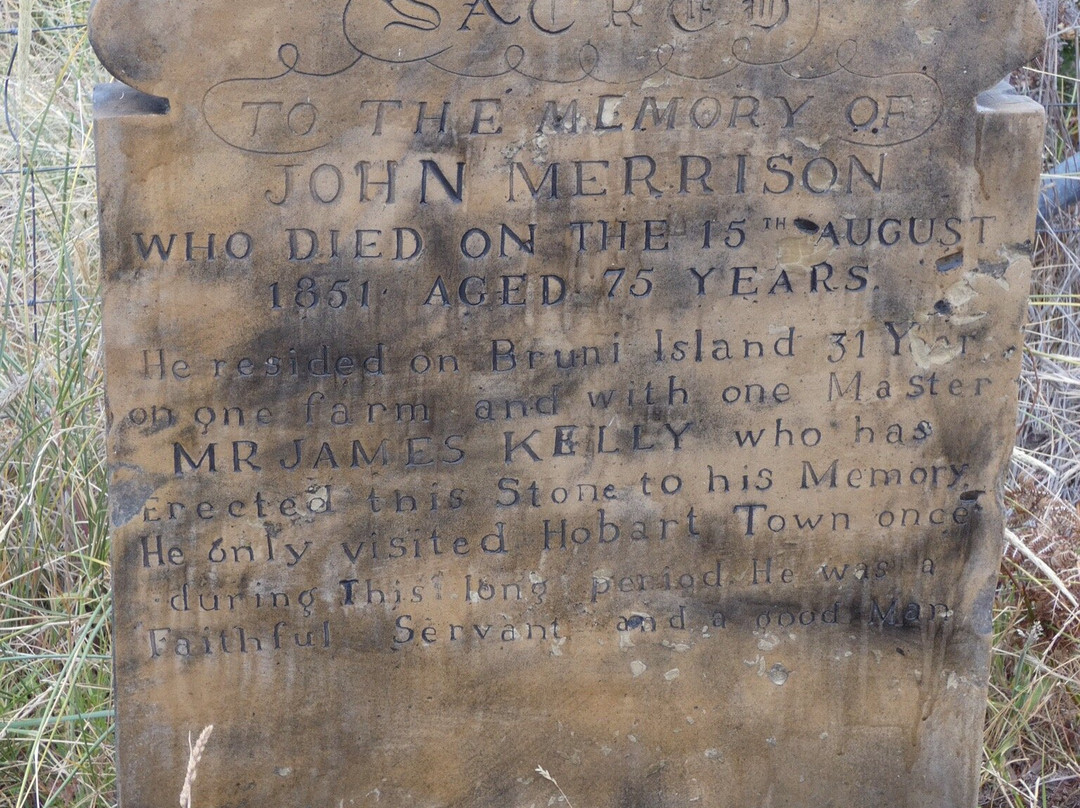 SACRED
TO THE MEMORY OF
JOHN MERRISON
WHO DIED ON THE 15TH AUGUST
1851 AGED 75 YEARS.
He resided on Bruni Island 31 Year
on one farm and with one Master
MR JAMES KELLY who has
Erected this Stone to his Memory.
He only visited Hobart Town once
during This long period He was a
Faithful Servant and a good Man